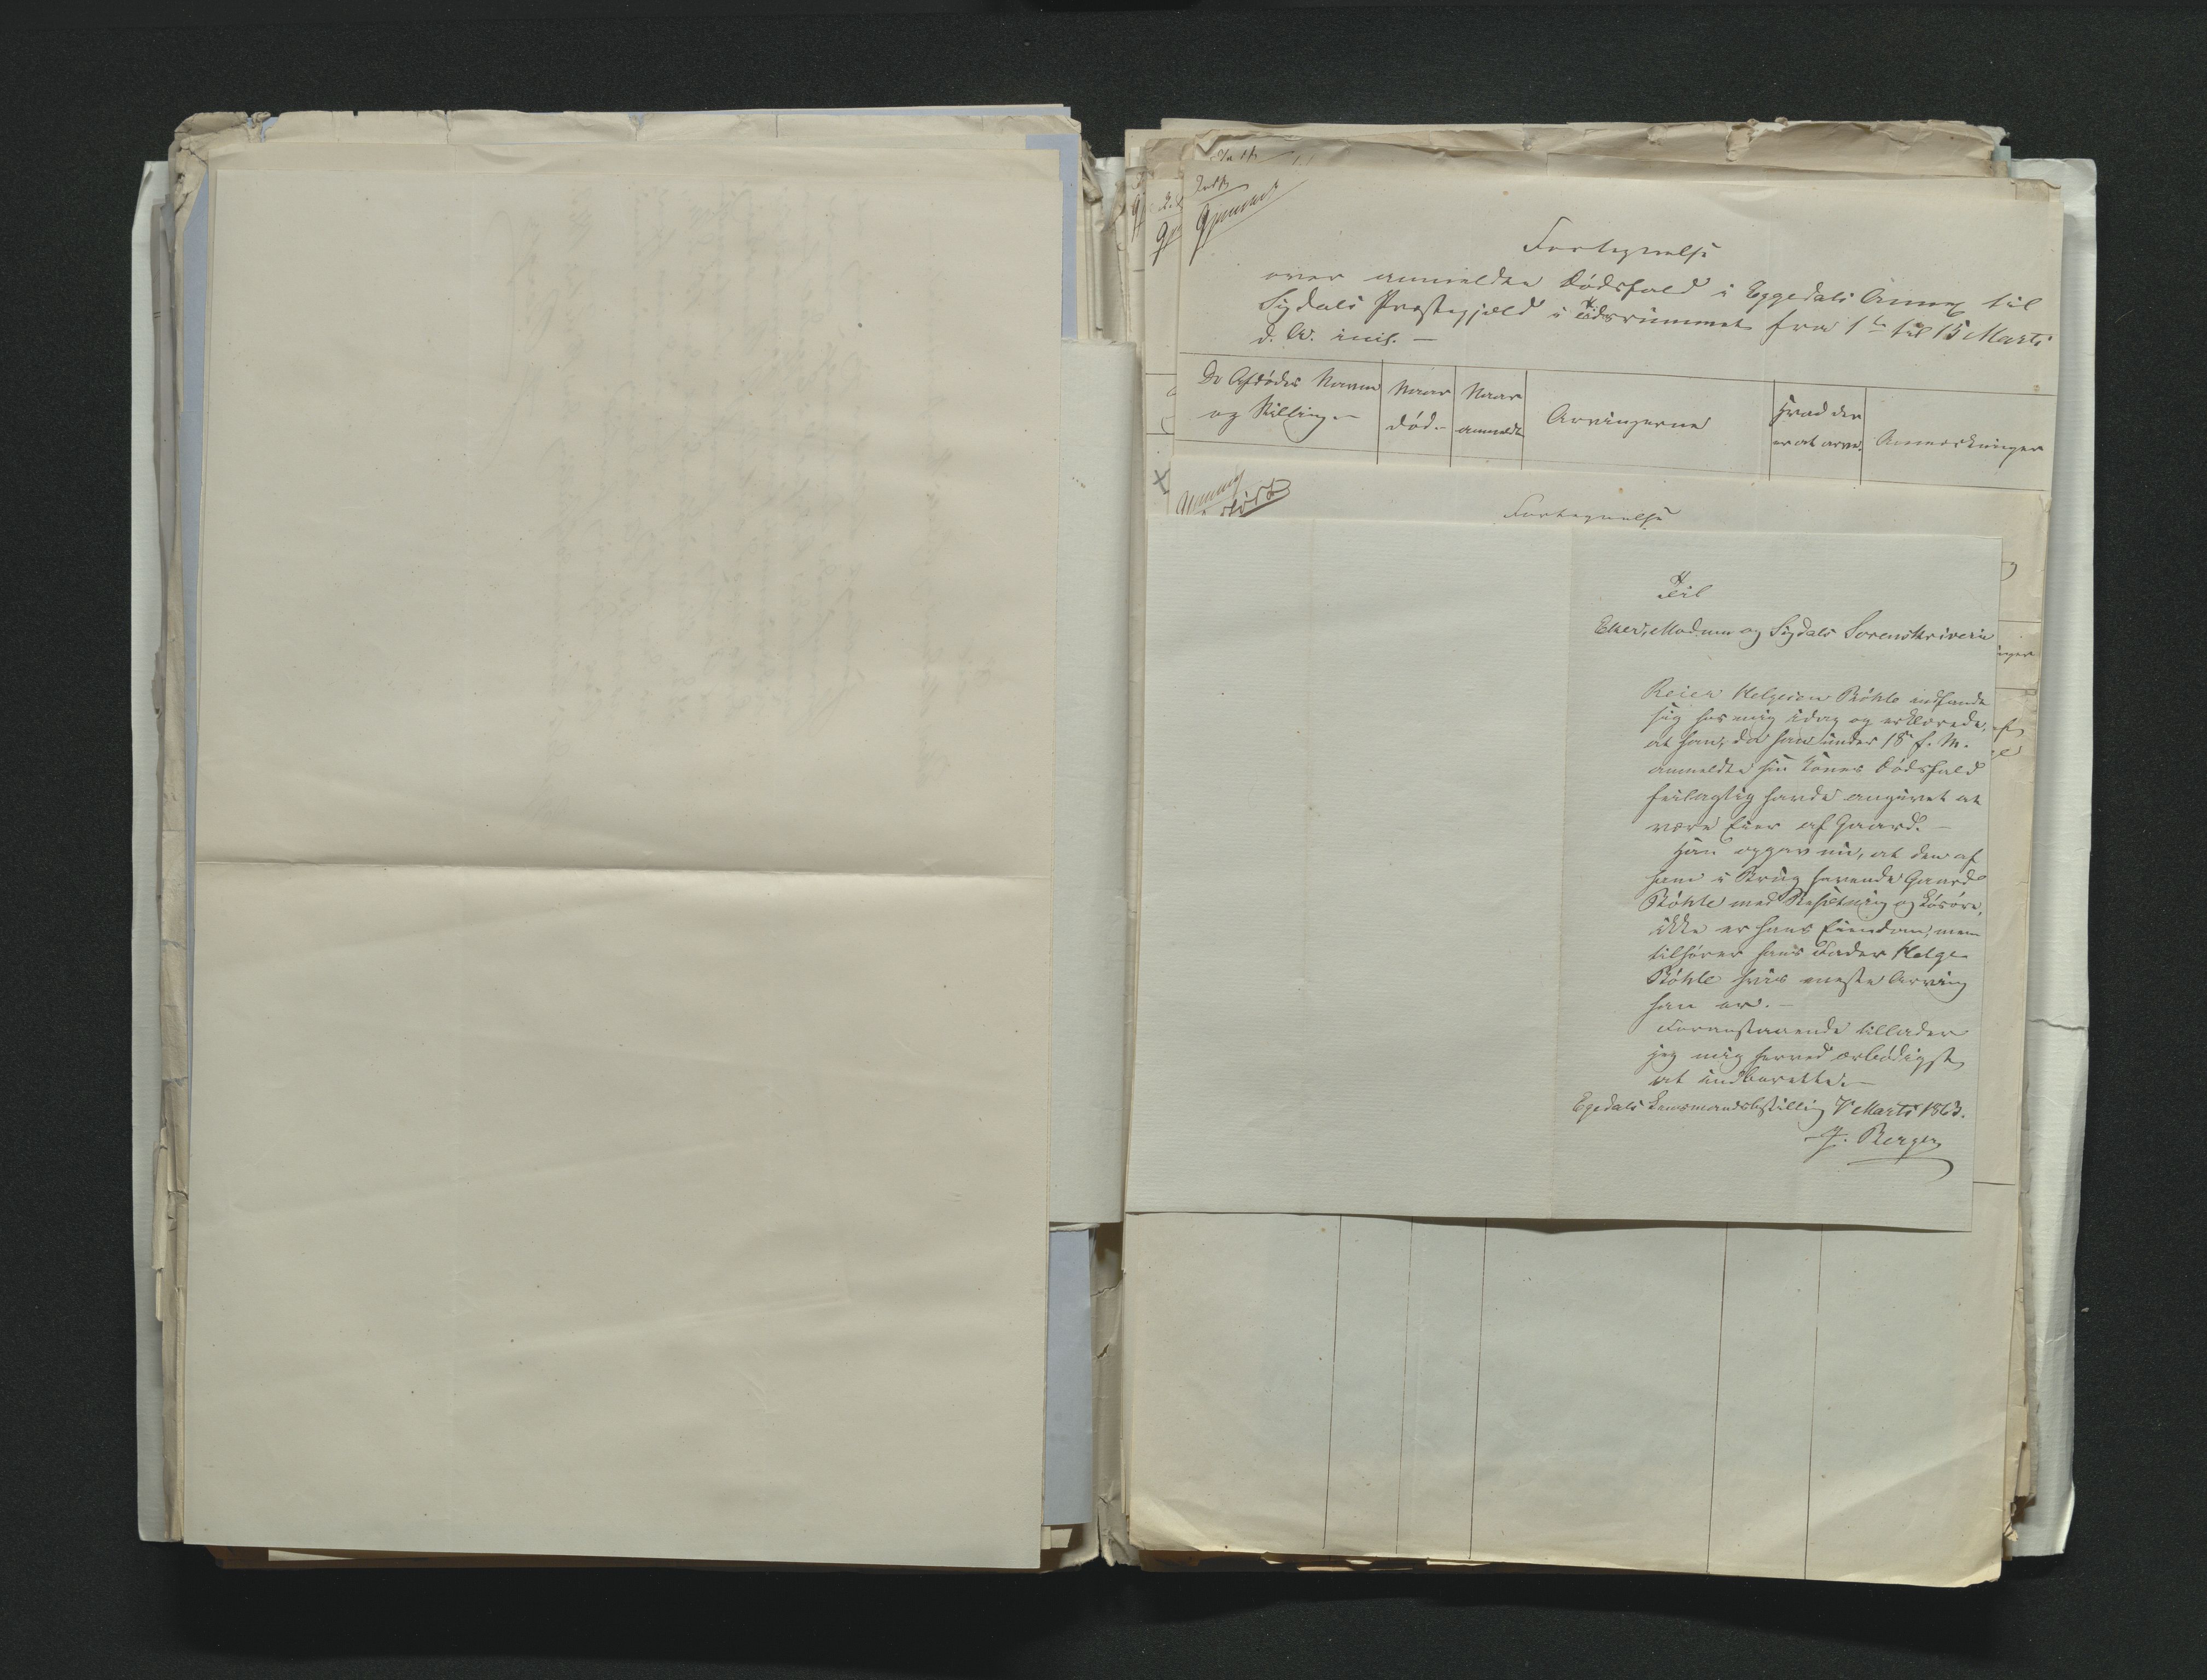 Fortegnelse
over anmeldte Dødsfald i Eggedals Annex til
Sigdals Præstegjæld i Tidsrummet fra 1ste til 15 Marts
d. A. incl. —
De Afdødes Navne
og Stilling.
Naar
død.
Naar
anmeldt
Arvingerne
Hvad der
er at arve.
Anmærkninger
Fortegnelse
Til
Eker, Modum og Sigdals Sorenskriveri
Reier Helgesen Bøhle indfandt
sig hos mig idag og erklærede,
at han, da han under 18 f. M.
anmeldte sin Kones Dødsfald
feilagtig havde angivet at
være Eier af Gaard. —
Han opgav nu, at den af
ham i Brug havende Gaard
Bøhle med Besætning og Løsøre,
ikke er hans Eiendom, men
tilhører hans Fader Helge
Bøhle hvis eneste Arving
han er. —
Foranstaaende tillader
jeg mig herved ærbødigst
at indberette. —
Egedals Lensmandsbestilling 7 Marts 1863.
Berger